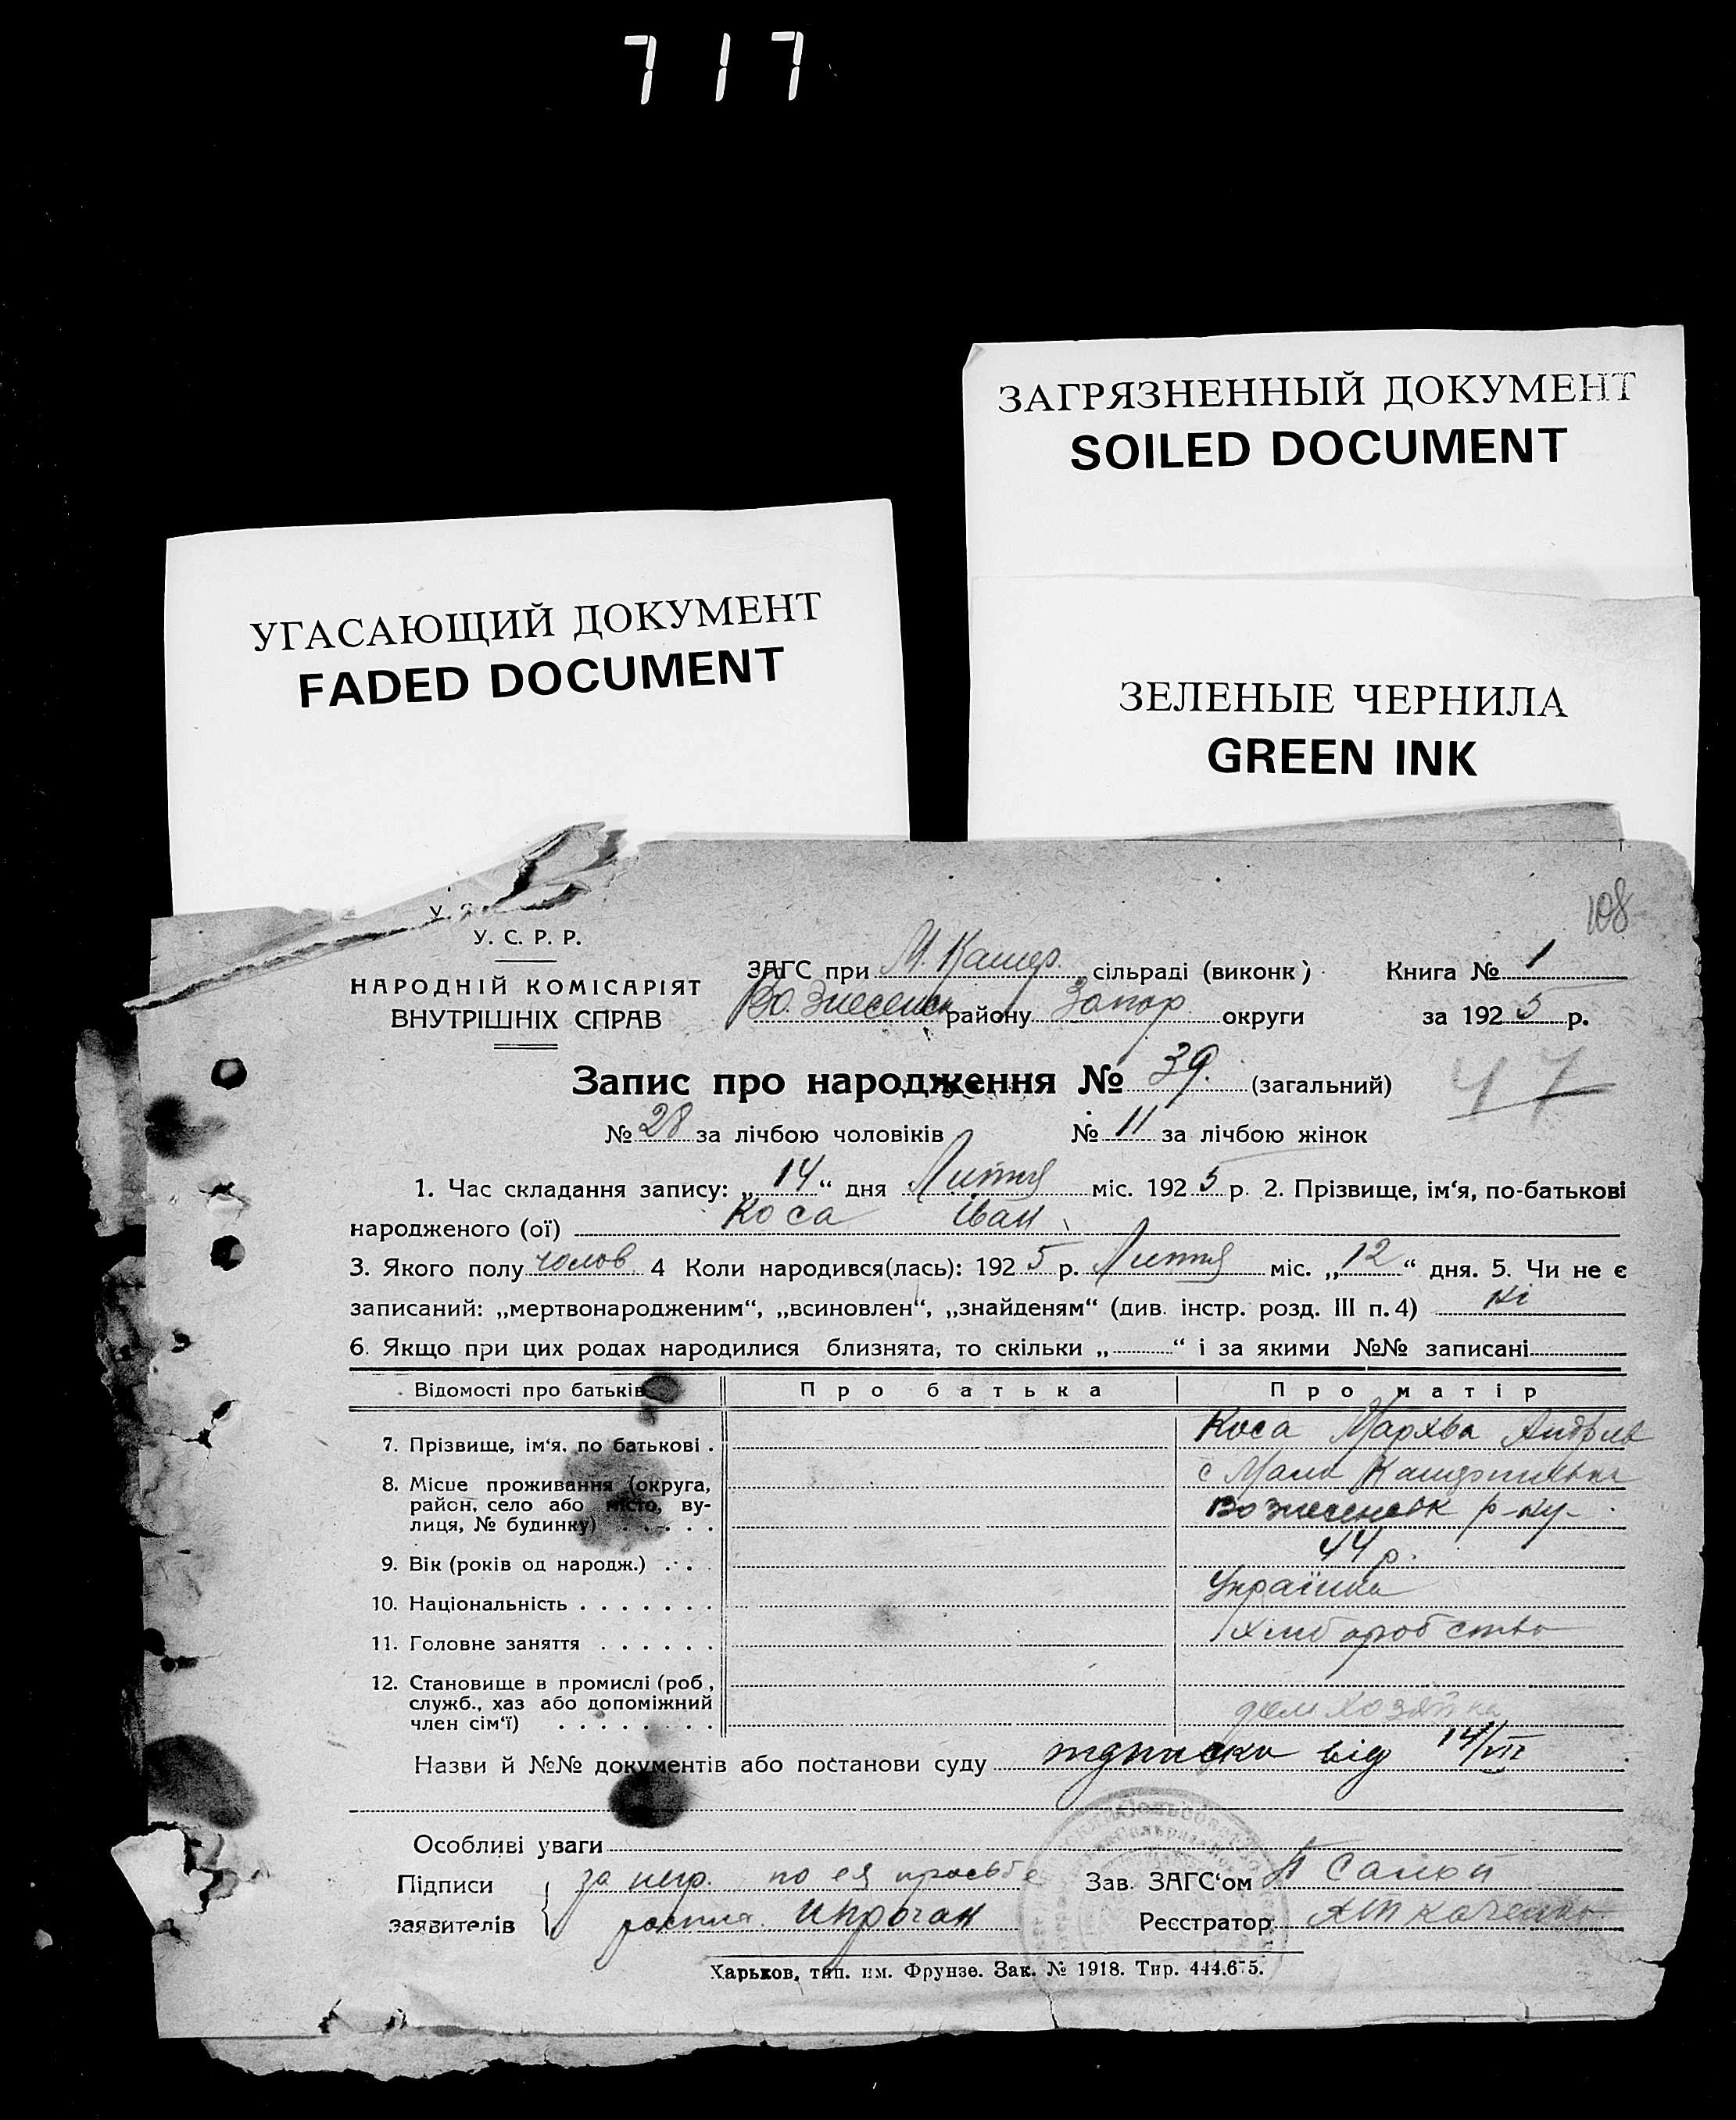 717
ЗАГРЯЗНЕННЫЙ ДОКУМЕНТ
SOILED DOCUMENT
УГАСАЮЩИЙ ДОКУМЕНТ
FADED DOCUMENT
ЗЕЛЕНЫЕ ЧЕРНИЛА
GREEN INK
108
У. С. Р. Р.
НАРОДНІЙ КОМІСАРІЯТ
ВНУТРІШНІХ СПРАВ
ЗАГС при М. Катер. сільраді (виконк)
Книга № 1
Вознесенск району Запор округи
за 1925 р.
Запис про народження № 39. (загальний)
47
№ 28 за лічбою чоловіків № 11 за лічбою жінок
1. Час складання запису: „14“ дня Липня міс. 1925 р. 2. Прізвище, ім‘я, по-батькові
народженого (ої) Коса Іван
3. Якого полу чолов. 4 Коли народився(лась): 1925 р. Липня міс. „12“ дня. 5. Чи не є
записаний: „мертвонародженим“, „всиновлен“, „знайденям“ (див. інстр. розд. III п. 4) ні
6. Якщо при цих родах народилися близнята, то скільки „ “ і за якими №№ записані
Відомості про батьків Про батька Про матір
7. Прізвище, ім‘я, по батькові . Коса Мархва Андрив
8. Місце проживання (округа, район, село або місто, вулиця, № будинку) с Мала
Вознесенськ р-ну
9. Вік (років од народж.) . . . 44 р.
10. Національність . . . . . . . Українка
11. Головне заняття . . . . . . хліборобство
12. Становище в промислі (роб., служб., хаз або допоміжний член сім‘ї) . . . . . . . . дом хозяйка
Назви й №№ документів або постанови суду підписка від 14/VII
Особливі уваги
Підписи за негр. по ея просьбе
Зав. ЗАГС‘ом
заявителів роспис.
Реєстратор Ткаченко
Харьков, тип. им. Фрунзе. Зак. № 1918. Тир. 444.675.